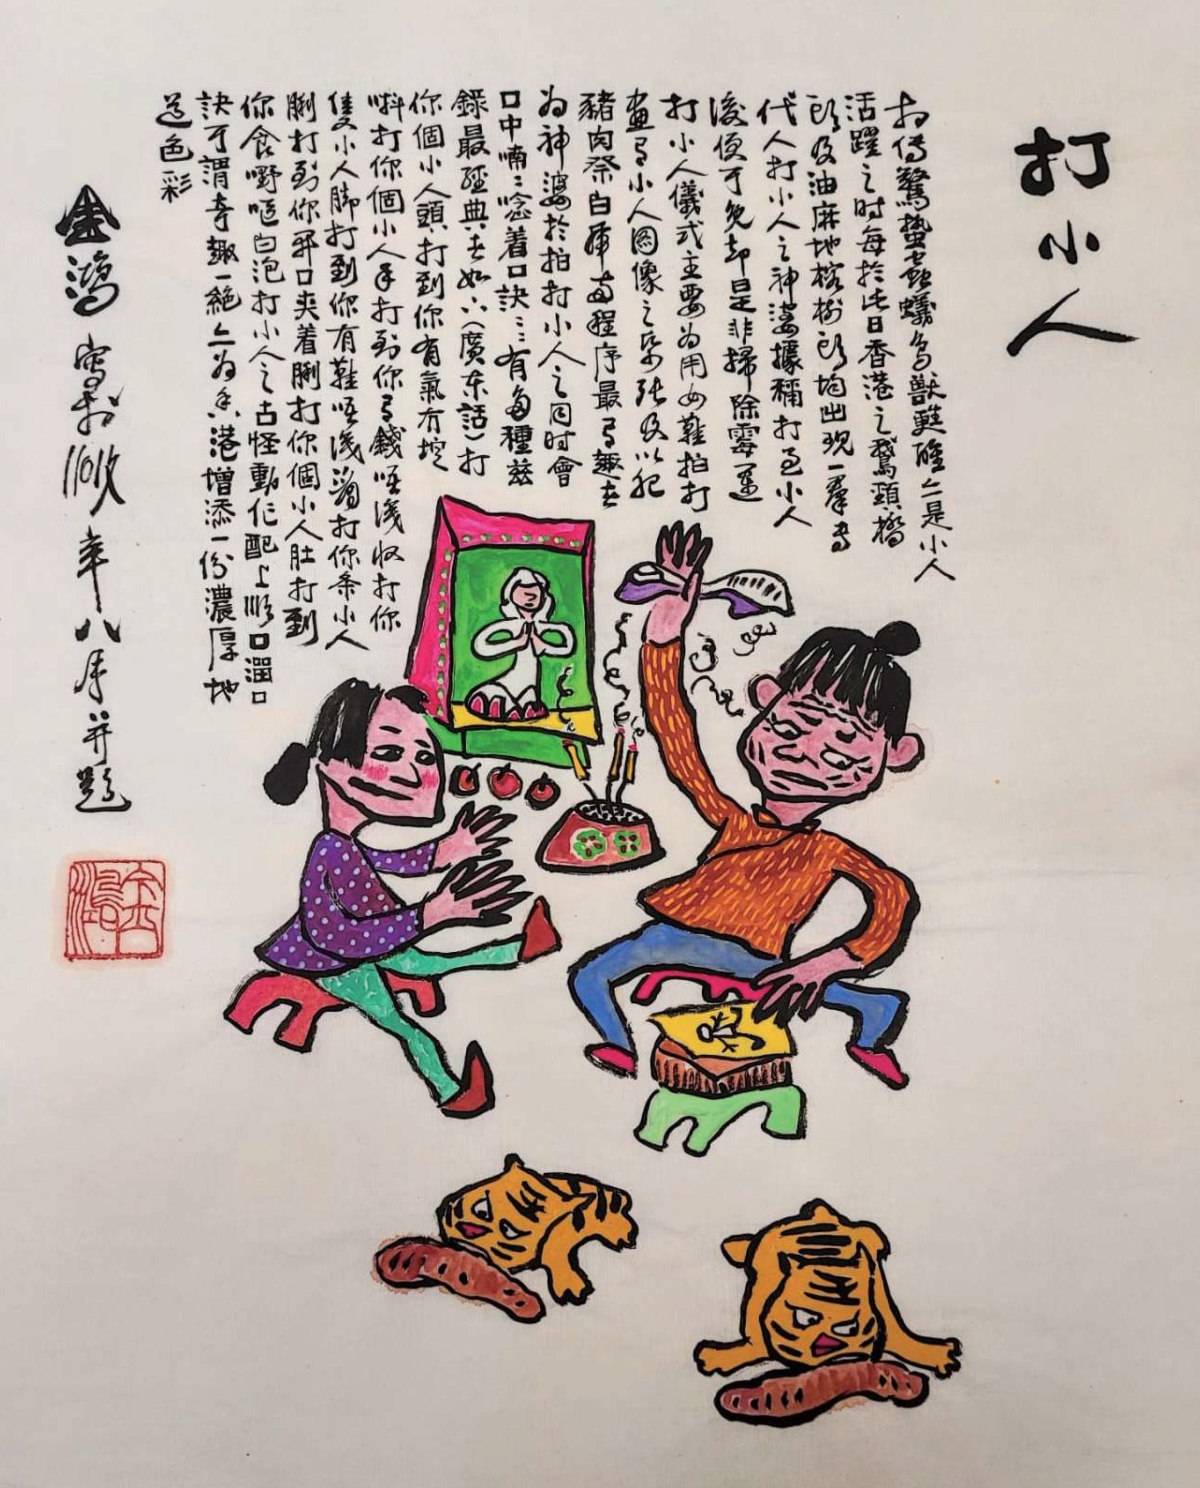 打小人
相傳驚蟄蟲蟻鳥獸甦醒亦是小人
活躍之時每於此日香港之鵝頸橋
頭及油麻地榕樹頭均出現一羣專
代人打小人之神婆據稱打過小人
後便可免却是非掃除霉運
打小人儀式主要為用女鞋拍打
畫有小人圖像之紙張及以肥
豬肉祭白虎兩程序最有趣者
為神婆於拍打小人之同時會
口中喃喃唸着口訣口訣有多種茲
錄最經典者如下(廣東話)打
你個小人頭打到你有氣冇埞
唞打你個小人手打到你有錢唔識收打你
隻小人脚打到你有鞋唔識着打你條小人
脷打到你丫口夾着脷打你個小人肚打到
你食嘢嘔白泡打小人之古怪動作配上順口溜口
訣可謂奇趣一絕亦為香港增添一份濃厚地
道色彩
金鴻寫於年八月并題
金鴻